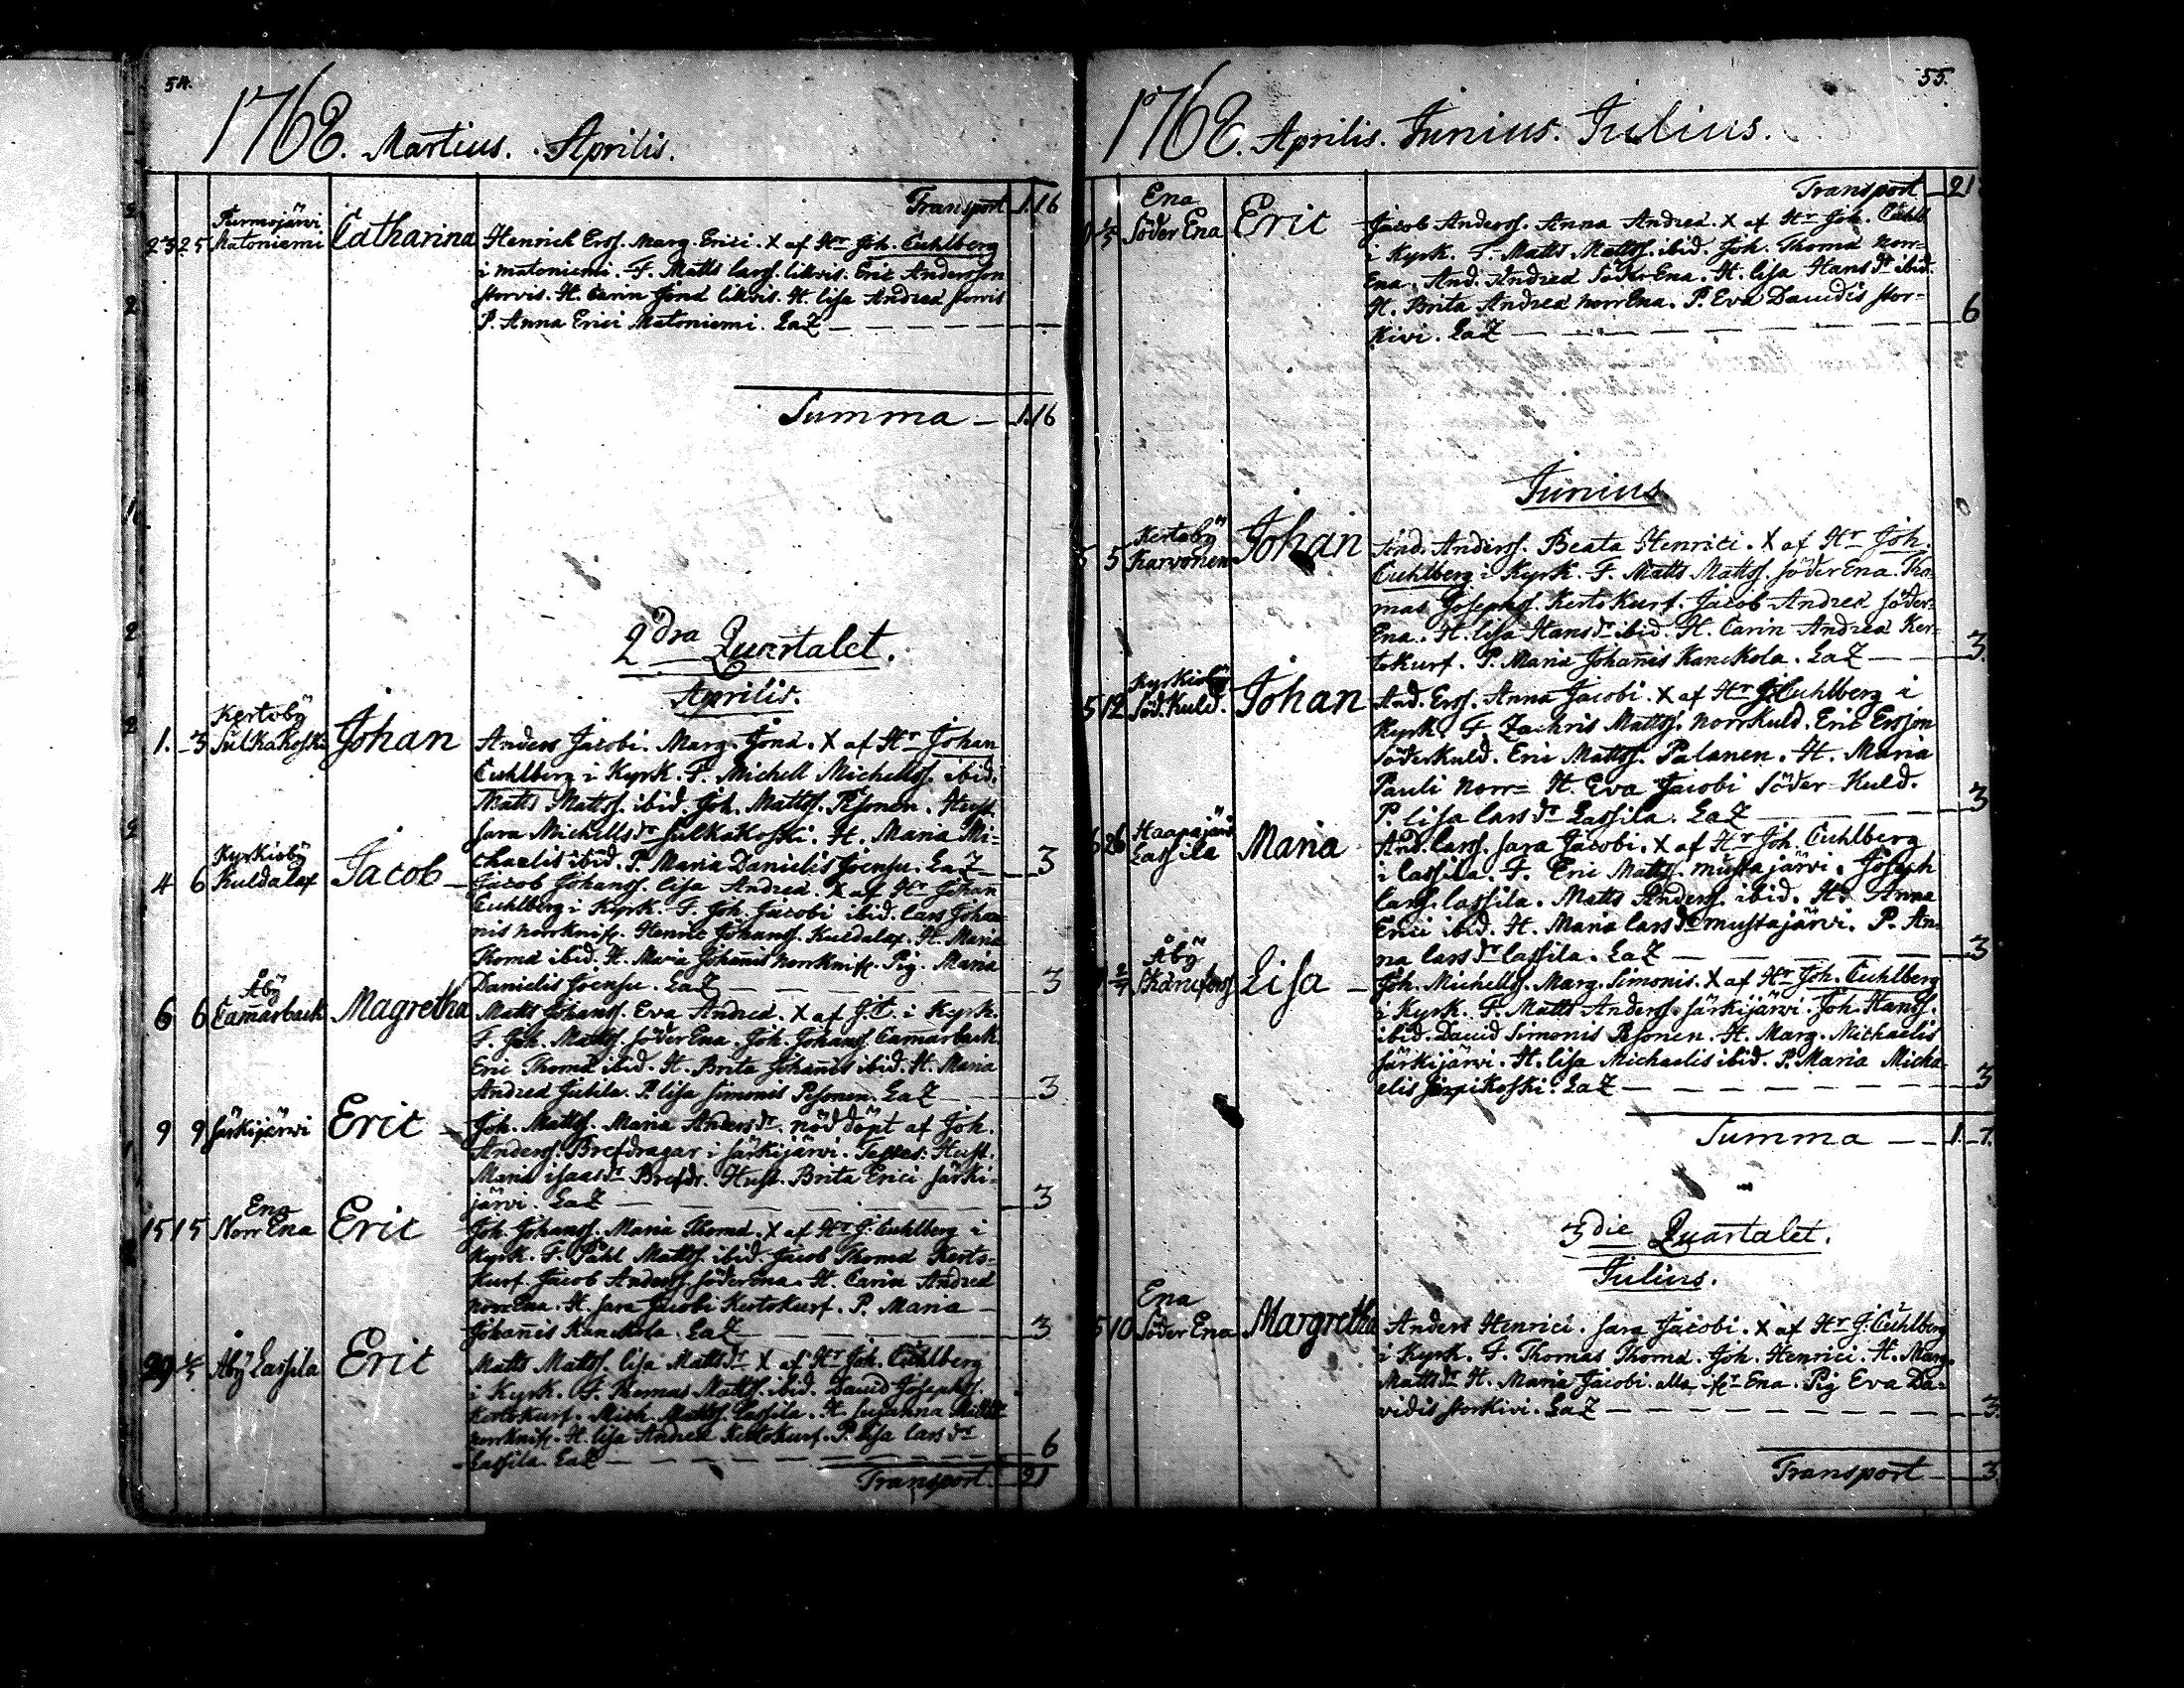 54.
1768. Martius. Aprilis.
Transport 1.16
Purmojärvi
23 25 Matoniemi Catharina Henrich Erss. Marg. Erici. X af Hr Joh. Cuhlberg
i matoniemi. F. Matts larss. lillvis. Eric Andersson
storvis. H. Carin Jona lillvis. H. lisa Andrea storvis
P. Anna Erici Matoniemi. LaZ
Summa 1.16
2dra Quartalet.
Aprilis.
Kertoby
1. 3 Sulkakoski Johan Anders Jacobi. Marg. Jona. X af Hr Johan
Cuhlberg i Kyrk. F. Michell Michellss. ibid.
Matts Mattss. ibid. Joh. Mattss. Pesonen. Hust.
Sara Michellsdr Sulkakoski. H. Maria Mi-
chaelis ibid. P. Maria Danielis Joensu. LaZ 3
Kyrkioby
4 6 Kuldalax Jacob Jacob Johanss. lisa Andrea. X af Hr Johan
Cuhlberg i Kyrk. F. Joh. Jacobi ibid. lars Johan-
nis norrknif. Henric Johanss. Kuldalax. H. Maria
Thoma ibid. H. Maria Johannis norrknif. Pig. Maria
Danielis Joensu. LaZ 3
Åby
6 6 Camarback Magretha Matts Johanss. Eva Andrea. X af J.C. i Kyrk.
F. Joh. Mattss. Söder Ena. Joh. Johanss. Camarback.
Eric Thoma ibid. H. Brita Johannis ibid. H. Maria
Andrea Jutila. P. lisa Simonis Pesonen. LaZ 3
9 9 Särkijärvi Eric Joh. Mattss. Maria Andersdr. nöddöpt af Joh.
Anderss. Brefdragar i Särkijärvi. Testes: Hust.
Maria isaacsdr Brefdr. Hust. Brita Erici Särki-
järvi. LaZ 3
Ena
15 15 Norr Ena Eric Joh. Johanss. Maria Thoma. X af Hr J. Cuhlberg i
Kyrk. F. Påhl Mattss. ibid. Jacob Thoma Kerto-
Kurf. Jacob Anderss. Söder Ena. H. Carin Andrea
norr Ena. H. Sara Jacobi Kertokurf. P. Maria
Johannis Kanckola. LaZ 3
29 Åby Lassila Eric Matts Mattss. lisa Mattsdr X af Hr Joh. Cuhlberg
i Kyrk. F. Thomas Mattss. ibid. David Josephss.
Kertokurf. Mich. Mattss. Lassila. H. Susanna
norrknif. H. lisa Andrea Kertokurf. P. lisa larsdr
Lassila. LaZ 6
Transport 21
55.
1768. Aprilis. Junius. Julius.
Transport 21
Ena
Söder Ena Eric Jacob Anderss. Anna Andrea. X af Hr Joh. Cuhlb
i Kyrk. F. Matts Mattss. ibid. Joh. Thoma Norr-
Ena. And. Andrea Söder Ena. H. lisa Hansdr ibid.
H. Brita Andrea norr Ena. P. Eva Davidis stor-
kivi. LaZ 6
Junius
Kertoby
5 5 Karvonen Johan And. Anderss. Beata Henrici. X af Hr Joh.
Cuhlberg i Kyrk. F. Matts Mattss. Söder Ena. Tho-
mas Josephss. Kertokurf. Jacob Andrea Söder-
Ena. H. lisa Hansdr ibid. H. Carin Andrea Ker-
tokurf. P. Maria Johannis Kanckola. LaZ 3.
Kyrkioby
5 12 Söd. Kuld. Johan And. Erss. Anna Jacobi. X af Hr J. Cuhlberg i
Kyrk. F. Zachris Mattss. norrkuld. Eric Ersson
Söderkuld. Eric Mattss. Palanen. H. Maria
Pauli norr= H. Eva Jacobi Söder-Kuld.
P. lisa larsdr Lassila. LaZ 3
Haapajärvi
26 Lassila Maria And. larss. Sara Jacobi. X af Hr Joh. Cuhlberg
i lassila. F. Eric Mattss. mustajärvi. Joseph
larss. lassila. Matts Anderss. ibid. H. Anna
Erici ibid. H. Maria larsdr mustajärvi. P. An-
na larsdr lassila. LaZ 3
Åby
Lisa Joh. Michellss. Marg. Simonis. X af Hr Joh. Cuhlberg
i Kyrk. F. Matts Anderss. Särkijärvi. Joh. Hanss.
ibid. David Simonis Pesonen. H. Marg. Michaelis
Särkijärvi. H. lisa Michaelis ibid. P. Maria Micha-
elis LaZ 3
Summa 1. 7.
3die Quartalet.
Julius.
Ena
5 10 Söder Ena Margretha Anders Henrici. Sara Jacobi. X af Hr J. Cuhlberg
i Kyrk. F. Thomas Thoma. Joh. Henrici. H. Marg.
Mattsdr H. Maria Jacobi. alla ifr Ena. Pig Eva Da-
vidis storkivi. LaZ 3.
Transport 3